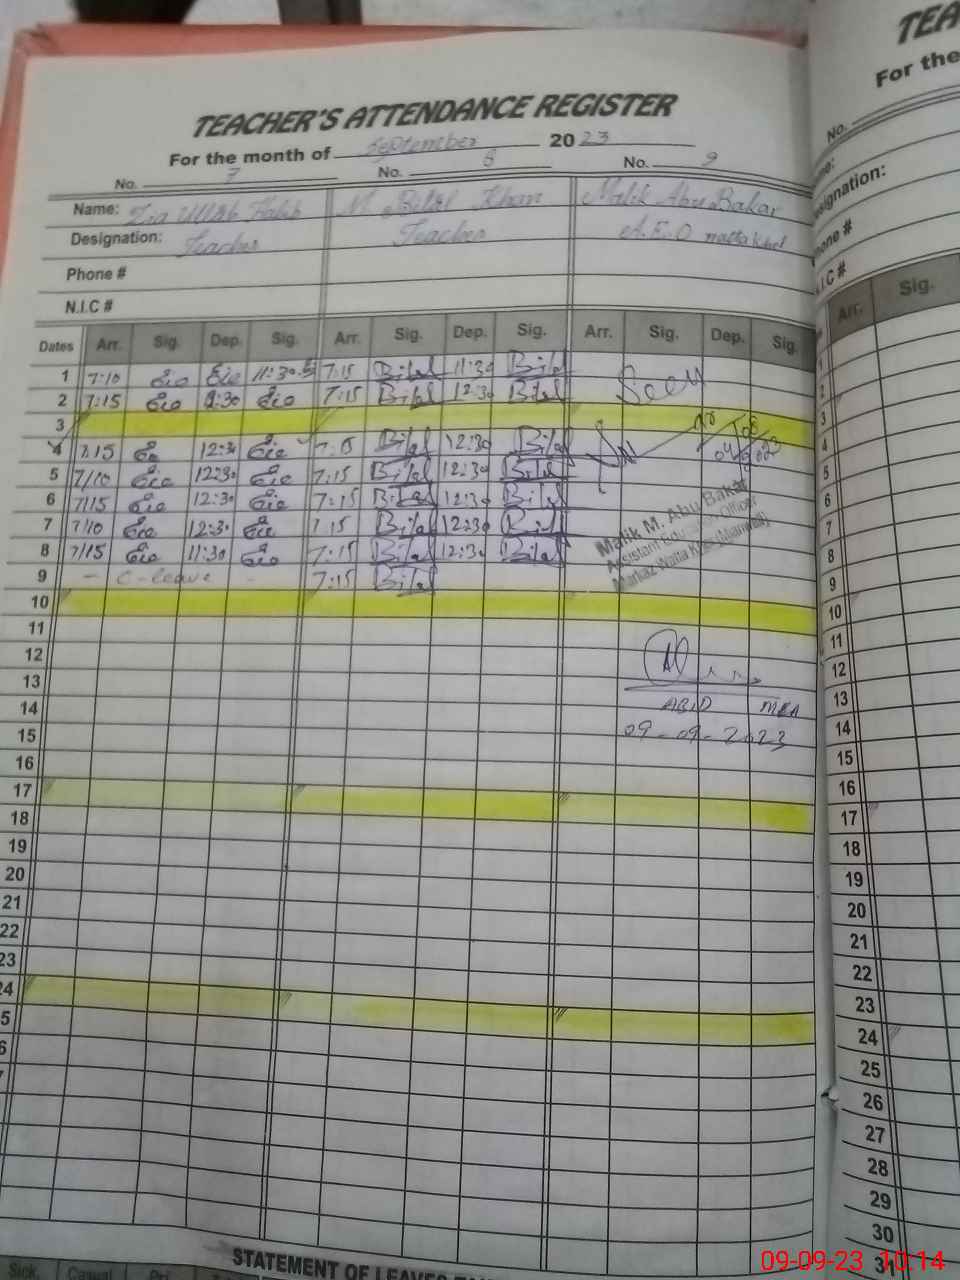 TEACHER'S ATTENDANCE REGISTER
For the month of September 2023
No. 7 No. 8 No. 9
Name: Zia Ullah Habib M Bilal Khan Malik Abu Bakar
Designation: Teacher Teacher A.E.O
Phone #
N.I.C #
Dates Arr. Sig. Dep. Sig. Arr. Sig. Dep. Sig. Arr. Sig. Dep. Sig.
1 7:10 11:30 7:15 Bilal 11:30 Bilal Seen
2 7:15 7:15 Bilal 12:30 Bilal
3
4 7:15 12:30 7:15 Bilal 12:30 Bilal
5 7/10 12:30 7:15 Bilal 12:30 Bilal
6 7/15 12:30 7:15 Bilal 12:30 Bilal
7 7/10 12:30 7:15 Bilal 12:30 Bilal
8 7/15 11:30 7:15 Bilal 12:30 Bilal
Malik M. Abu Bakar
Assistant Education Officer
Markaz (Mianwali)
9 - C-leave - 7:15 Bilal
10
11
12
13
14 ABID MEA
15 09-09-2023
16
17
18
19
20
21
22
23
24
5
6
7
STATEMENT OF LEAVES
Sick. Casual
TEA
For the
No.
me:
esignation:
hone #
N.I.C #
Arr. Sig.
1
2
3
4
5
6
7
8
9
10
11
12
13
14
15
16
17
18
19
20
21
22
23
24
25
26
27
28
29
30
31
09-09-23 10:14